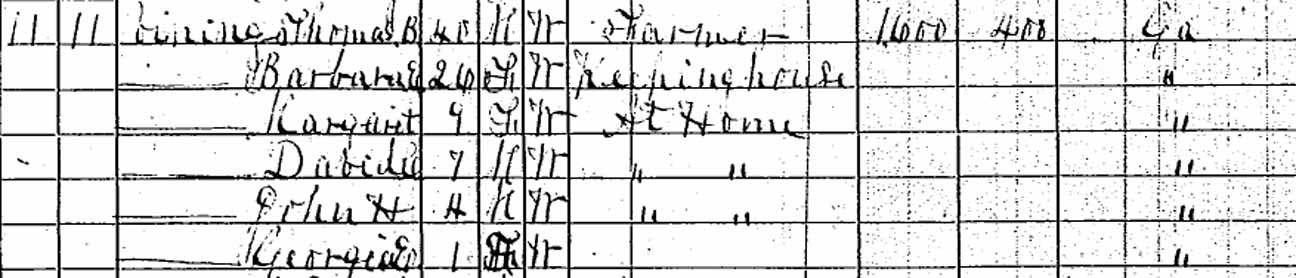 11 11 Vining Thomas B 40 M W Farmer 1600 400 Ga
Barbara E 26 F W Keeping house "
Margaret 9 F W At Home "
David 7 M W " " "
John H 4 M W " " "
Georgia 1 F W "